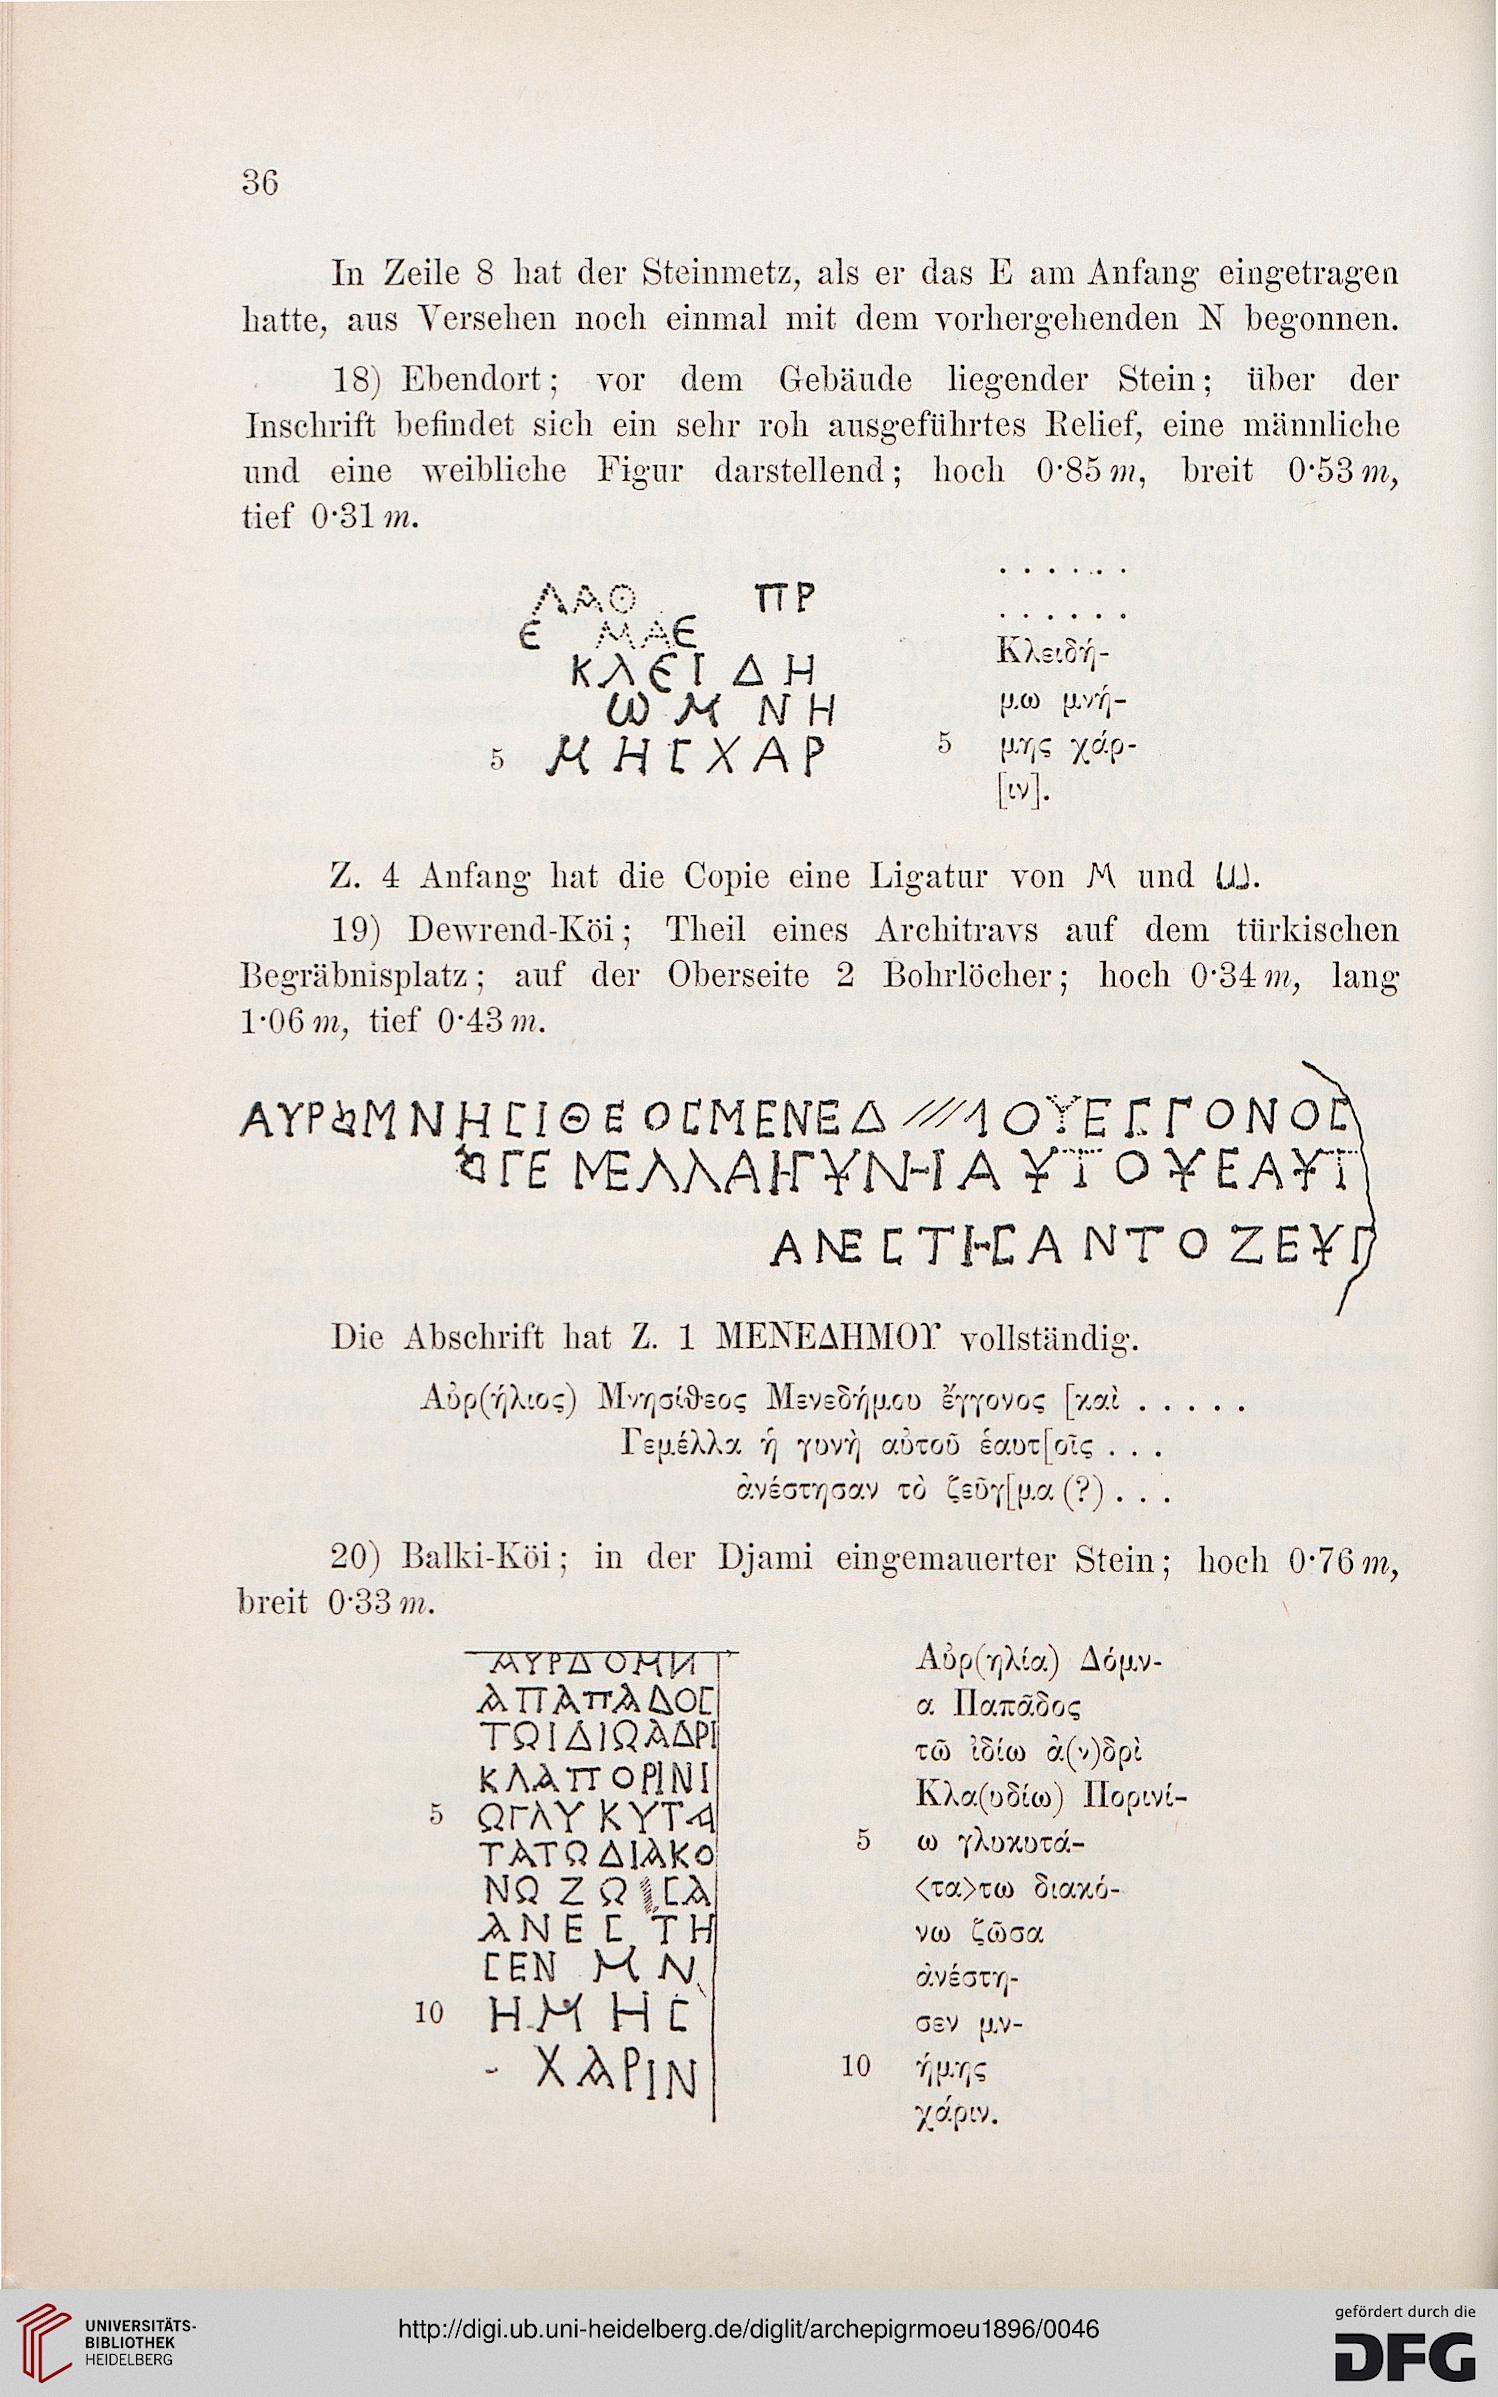 36
In Zeile 8 hat der Steinmetz, als er das E am Anfang eingetragen
hatte, aus Versehen noch einmal mit dem vorhergehenden N begonnen.
18) Ebendort; vor dem Gebäude liegender Stein; über der
Inschrift befindet sich ein sehr roh ausgeführtes Relief, eine männliche
und eine weibliche Figur darstellend; hoch 0·85 m, breit 0·53 m,
tief 0·31 m.
ΛΑΘ ΠΡ
Ε ΜΑΕ
ΚΛΕΙ ΔΗ
ω Μ ΝΗ
5 ΜΗΣΧΑΡ
. . . . . .
. . . . . .
Κλειδή-
μω μνή-
5 μης χάρ-
[ιν].
Z. 4 Anfang hat die Copie eine Ligatur von Μ und ω.
19) Dewrend-Köi; Theil eines Architravs auf dem türkischen
Begräbnisplatz; auf der Oberseite 2 Bohrlöcher; hoch 0·34 m, lang
1·06 m, tief 0·43 m.
ΑΥΡ ΜΝΗΣΙΘΕΟΣΜΕΝΕΔ ΟΥΕΓΓΟΝΟΣ
ΓΕΜΕΛΛΑΗΓΥΝΗΑΥΤΟΥΕΑΥΤ
ΑΝΕΣΤΗΣΑΝΤΟΖΕΥΓ
Die Abschrift hat Z. 1 ΜΕΝΕΔΗΜΟΥ vollständig.
Αὐρ(ήλιος) Μνησίθεος Μενεδήμου ἔγγονος [καὶ . . . . .
Γεμέλλα ἡ γυνὴ αὐτοῦ ἑαυτ[οῖς . . .
ἀνέστησαν τὸ ζεῦγ[μα (?) . . .
20) Balki-Köi; in der Djami eingemauerter Stein; hoch 0·76 m,
breit 0·33 m.
ΑΥΡΔΟΜΝ
ΑΠΑΠΑΔΟΣ
ΤΩΙΔΙΩΑΔΡΙ
ΚΛΑΠΟΡΙΝΙ
5 ΩΓΛΥΚΥΤΑ
ΤΑΤΩΔΙΑΚΟ
ΝΩ ΖΩ ΣΑ
ΑΝΕΣΤΗ
ΣΕΝ ΜΝ
10 ΗΜΗΣ
- ΧΑΡΙΝ
Αὐρ(ηλία) Δόμν-
α Παπᾶδος
τῶ ἰδίω ἀ(ν)δρὶ
Κλα(υδίω) Πορινί-
5 ω γλυκυτά-
<τα>τω διακό-
νω ζῶσα
ἀνέστη-
σεν μν-
10 ήμης
χάριν.
UNIVERSITÄTS-
BIBLIOTHEK
HEIDELBERG
http://digi.ub.uni-heidelberg.de/diglit/archepigrmoeu1896/0046
gefördert durch die
DFG